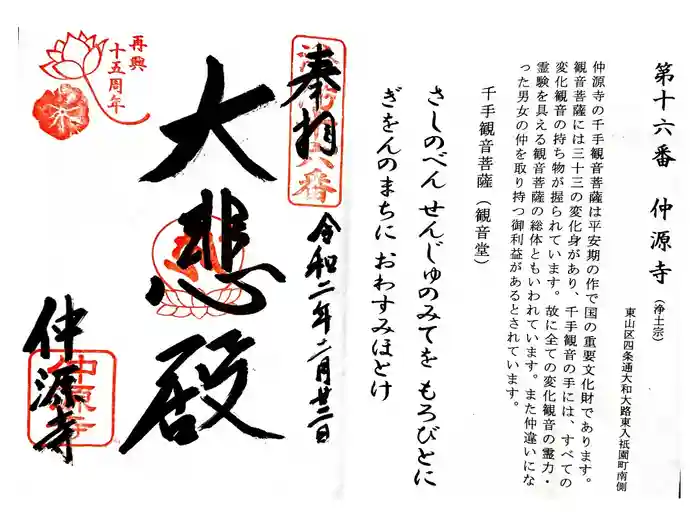 第十六番　仲源寺（浄土宗）
東山区四条通大和大路東入祇園町南側
仲源寺の千手観音菩薩は平安期の作で国の重要文化財であります。
観音菩薩には三十三の変化身があり、千手観音の手には、すべての
変化観音の持ち物が握られています。故に全ての変化観音の霊力・
霊験を具える観音菩薩の総体ともいわれています。また仲違いにな
った男女の仲を取り持つ御利益があるとされています。
千手観音菩薩（観音堂）
さしのべん せんじゅのみてを もろびとに
ぎをんのまちに おわすみほとけ
奉拝
令和二年二月廿二日
大悲殿
仲源寺
再興
十五周年
仲源寺